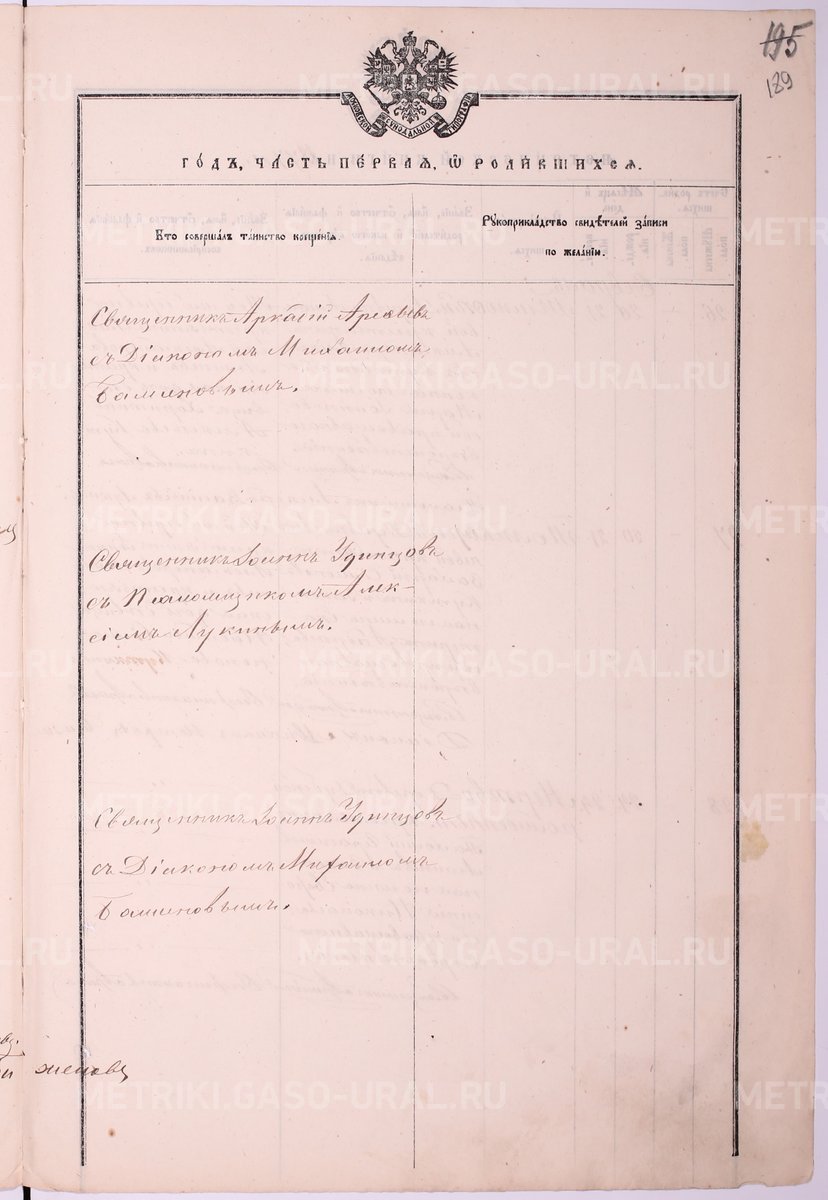 195
189
МОСКОВСК СУНОДАЛЬНОЙ ТИПОГРАФ
ГОДЪ, ЧАСТЬ ПЕРВАЯ, Ѡ РОДИВШИХСЯ.
Кто совершалъ таинство крещенія.
Рукоприкладство свидѣтелей записи
по желанію.
Священникъ Аркадій Арефьевъ
съ Діакономъ Михаиломъ
Баженовымъ.
Священникъ Іоаннъ Удинцовъ
съ Псаломщикомъ Алек-
сіемъ Лукинымъ.
Священникъ Іоаннъ Удинцовъ
съ Діакономъ Михаиломъ
Баженовымъ.
METRIKI.GASO-URAL.RU